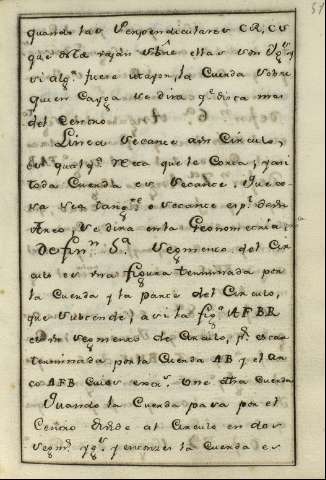 51
quando las Perpendiculares CR, CV
que estas rajan sobre ellas son Yg.s y
si alg.a fuere mayor, la Cuerda sobre
quien Cayga se dira q.e dista mas
del Centro
Linea Secante a un Circulo,
es qualq.a recta que lo Corta; y asi
toda Cuerda es Secante. Que co
sa sea tang.te o secante de un
Arco, Se dira en la Geometria,
Defin.n 5.a Segmento del Cir
culo es una figura terminada por
la Cuerda y la parte del Circulo,
que subtende; asi la fig.a AFBR
es un segmento de Circulo, p.r estar
terminada por la Cuerda AB y el Ar
co AFB Cuios extr.s Une dha Cuerda
Quando la Cuerda pasa por el
Centro divide al Circulo en dos
segm.s yg.s y entonces la Cuerda es